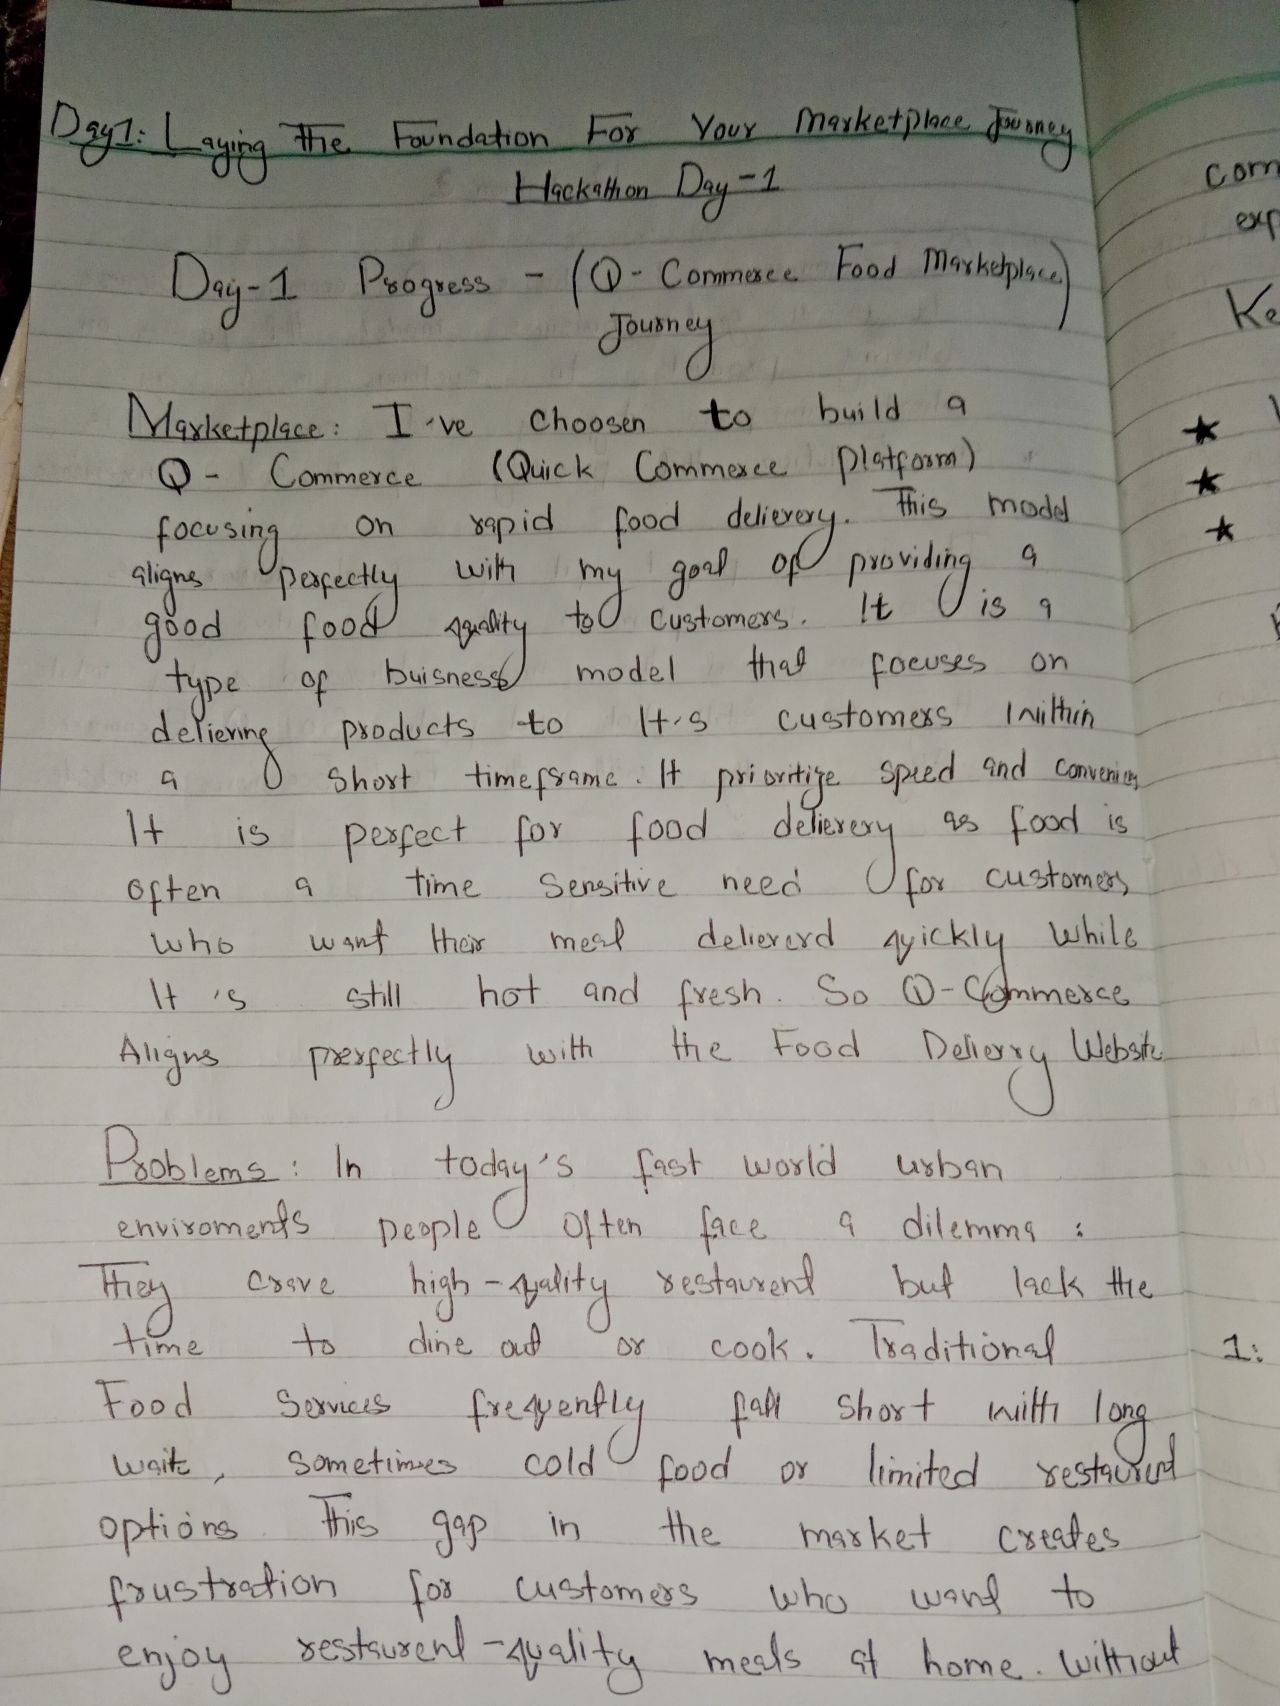 Day1: Laying The Foundation For Your Marketplace Journey
Hackathon Day-1
Day-1 Progress - (Q-Commerce Food Marketplace)
Journey
Marketplace: I've choosen to build a
Q- Commerce (Quick Commerce Platform)
focusing on rapid food delievery. This model
aligns perfectly with my goal of providing a
good food quality to customers. It is a
type of buisness model that focuses on
delievring products to It's customers within
a short timeframe. It prioritize speed and
It is perfect for food delievery as food is
often a time sensitive need for customers
who want their meal delievered quickly while
It's still hot and fresh. So Q-Commerce
Aligns perfectly with the Food Website
Problems: In today's fast world urban
enviroments people often face a dilemma :
They crave high-quality restaurent but lack the
time to dine out or cook. Traditional
Food Services frequently fall short with long
waits, sometimes cold food or limited restaurent
options. This gap in the market creates
frustration for customers who want to
enjoy restaurent-quality meals at home. without
com
exp
Ke
★
★
★
1: